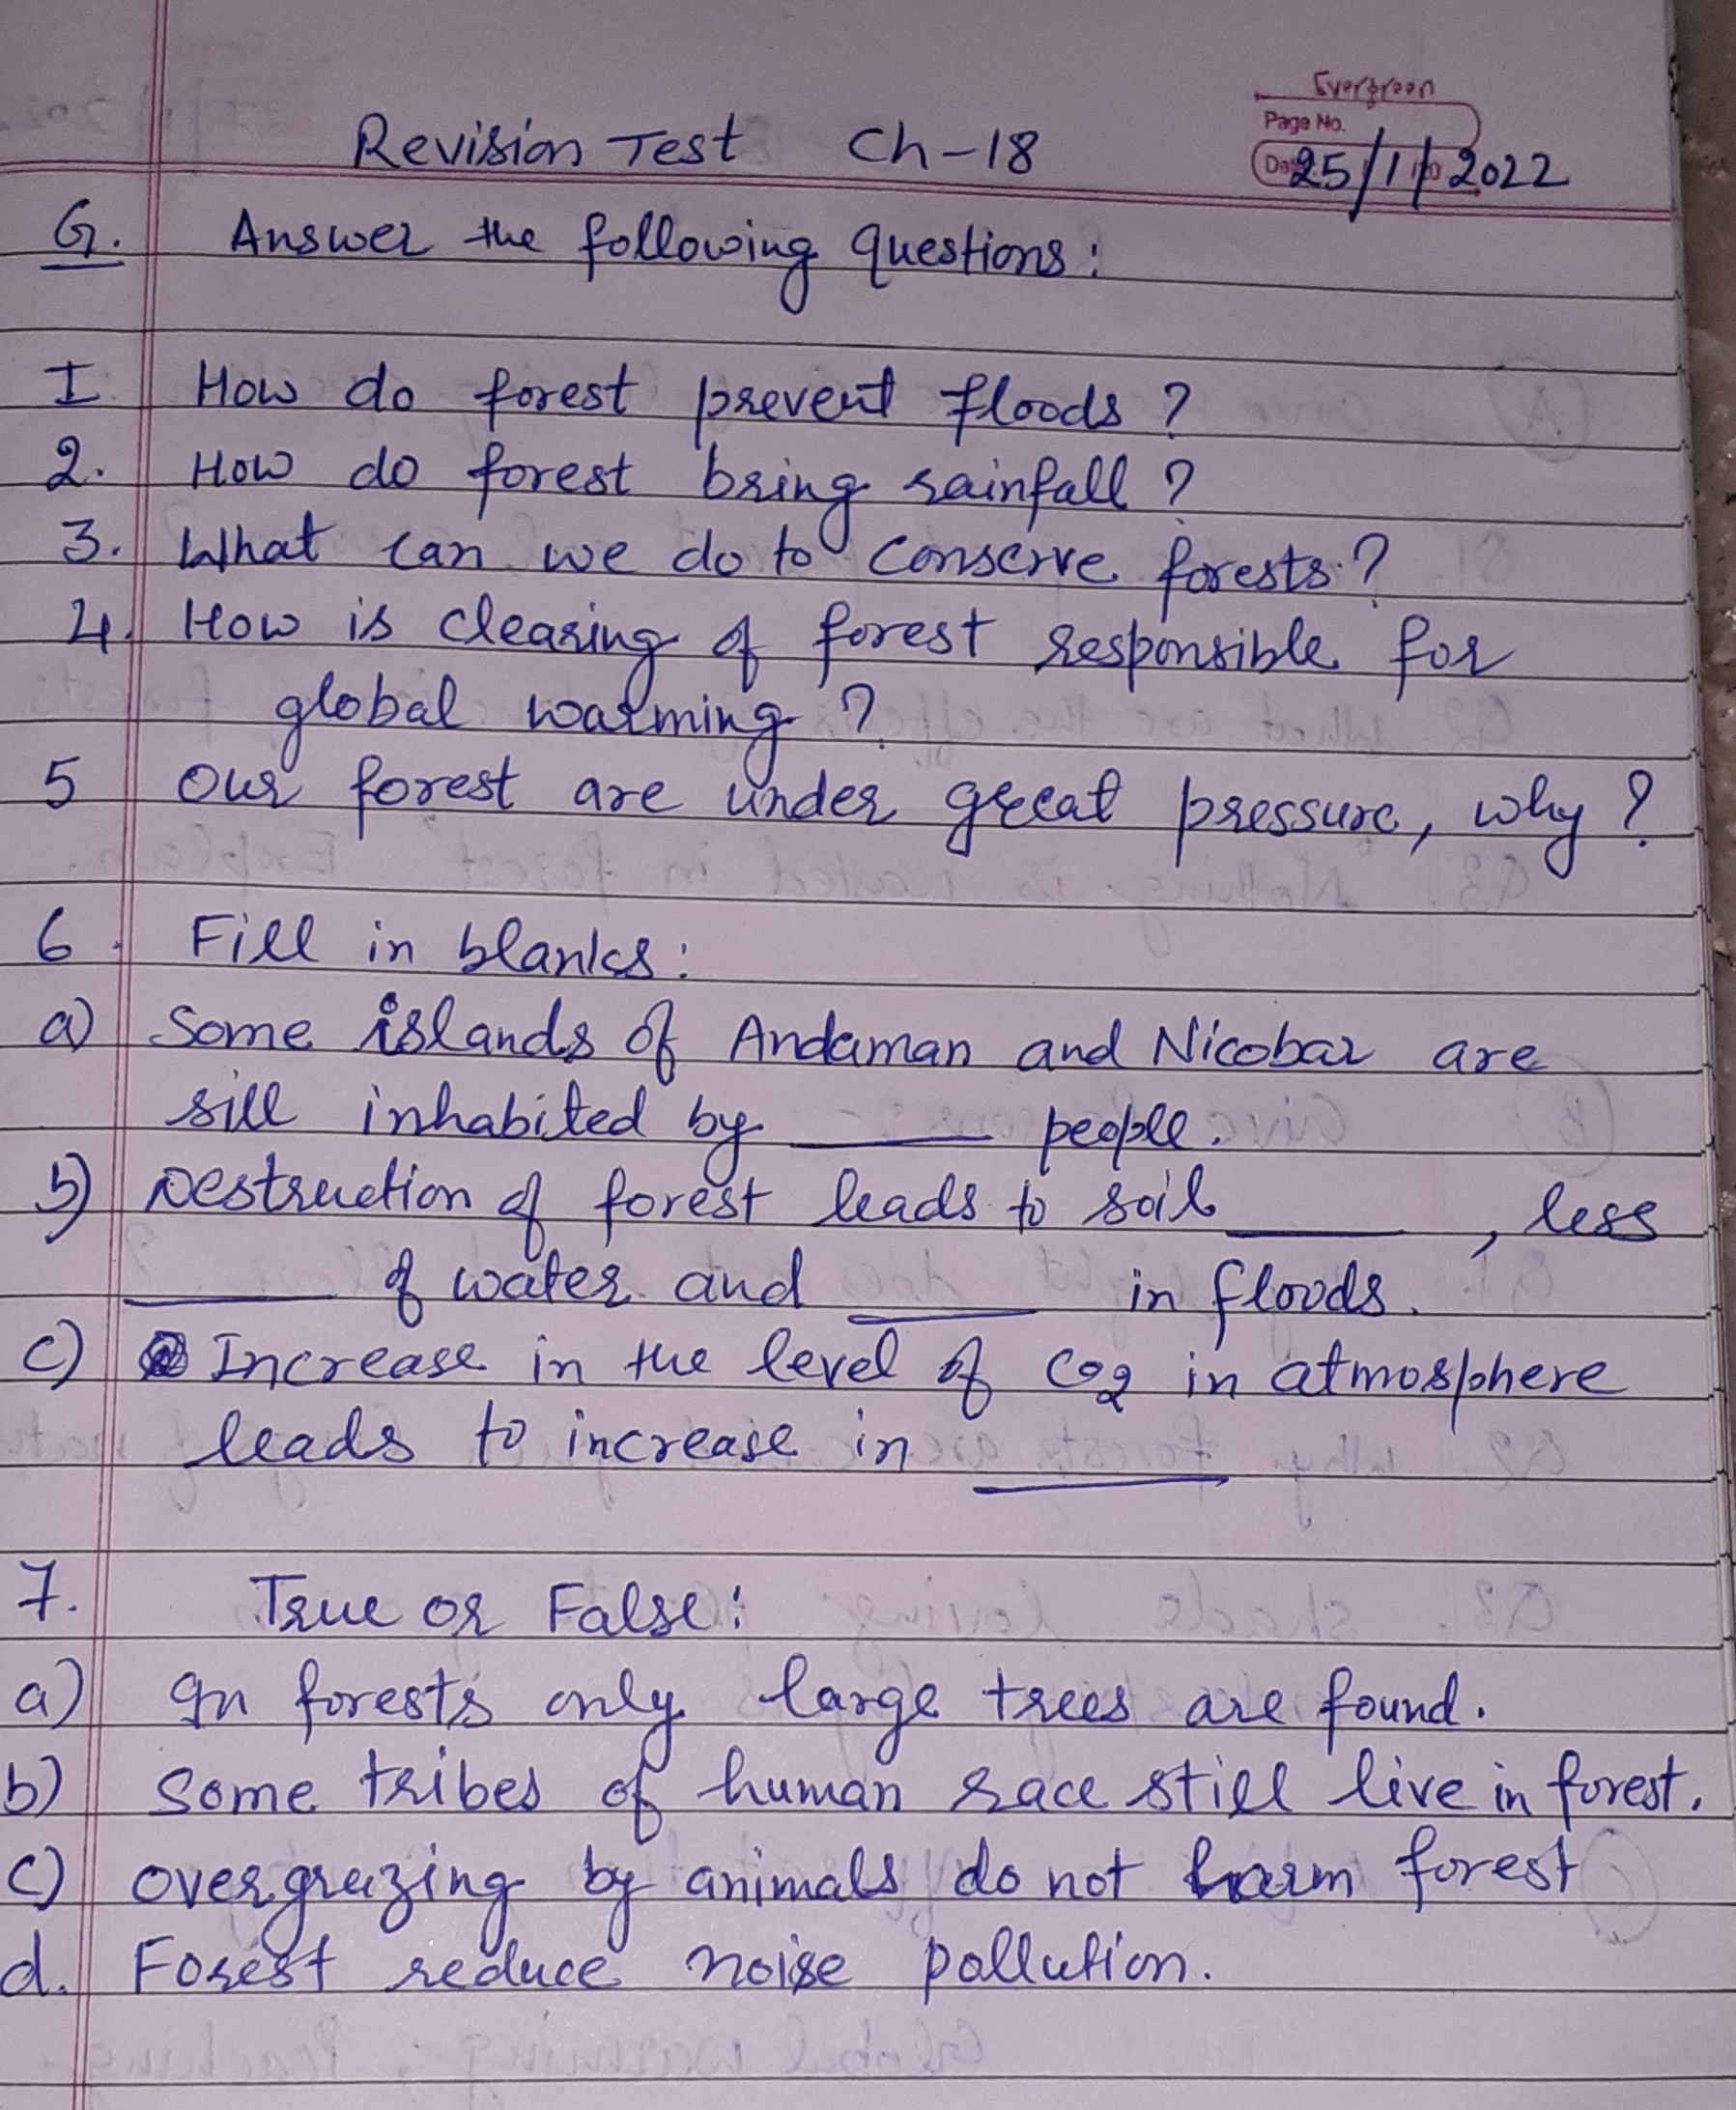 Evergreen
Page No.
Revision Test Ch-18 25/1/2022
G. Answer the following questions:
I How do forest prevent floods?
2. How do forest bring rainfall?
3. What can we do to conserve forests?
4. How is clearing of forest responsible for
global warming?
5 Our forest are under great pressure, why?
6. Fill in blanks:
a) Some islands of Andaman and Nicobar are
sill inhabited by ______ people.
b) Destruction of forest leads to soil ______, less
______ of water and ______ in floods.
c) Increase in the level of CO2 in atmosphere
leads to increase in ______
7. True or False:
a) In forests only large trees are found.
b) Some tribes of human race still live in forest.
c) overgrazing by animals do not harm forest
d. Forest reduce noise pollution.